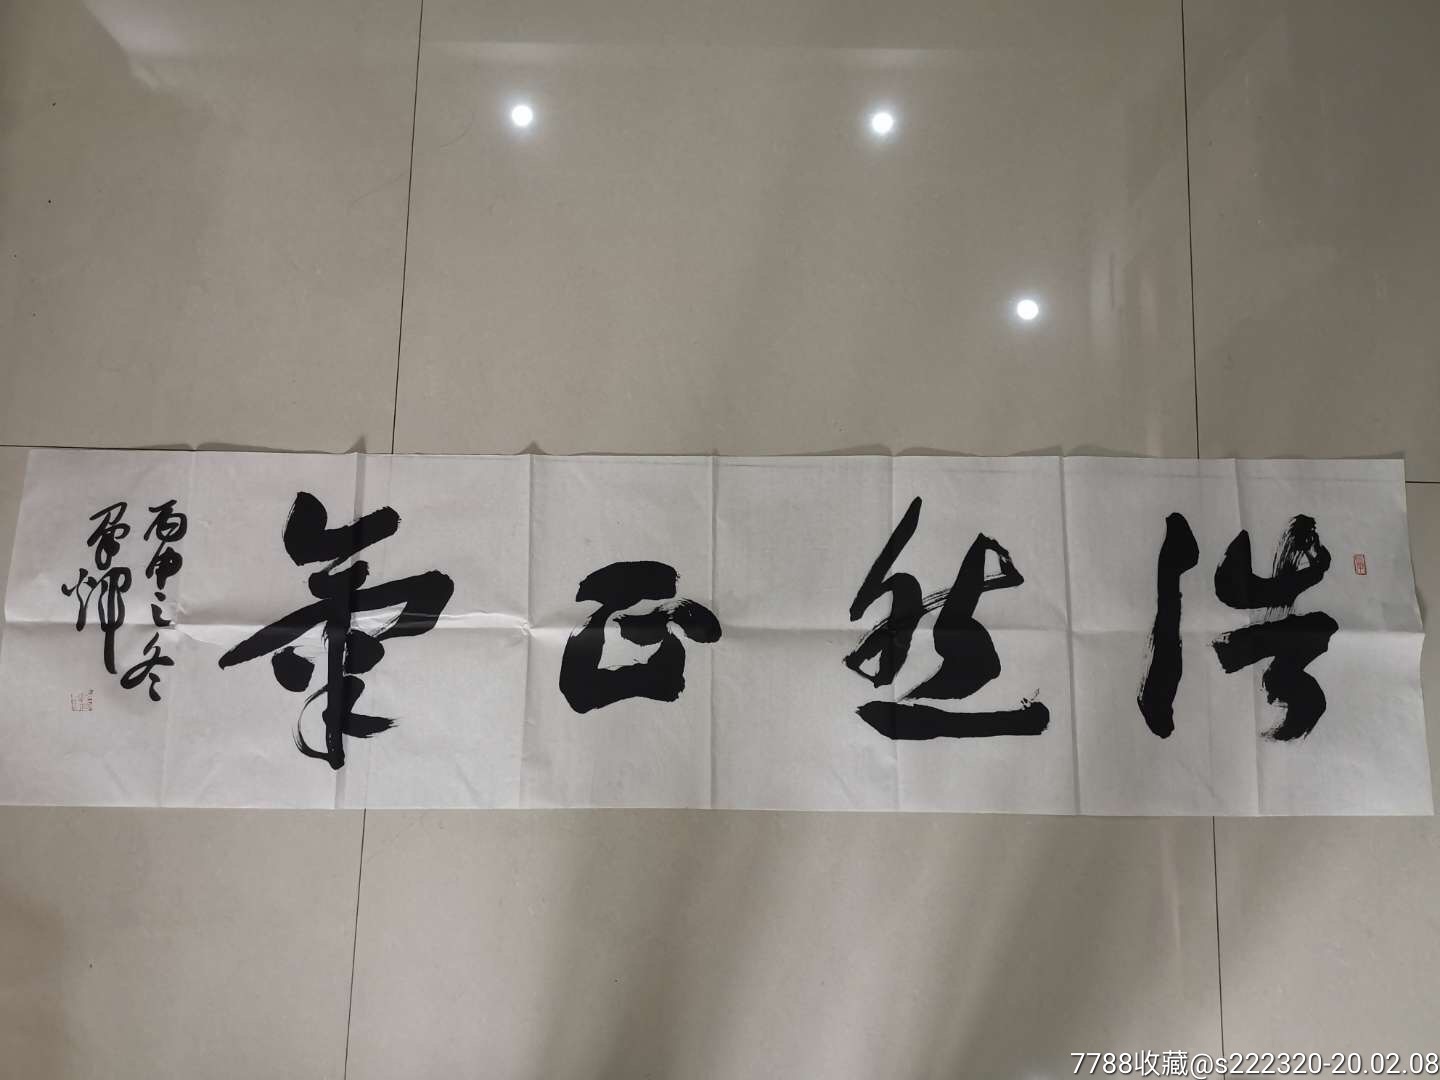 浩然正氣
丙申之冬
7788收藏@s222320-20.02.08